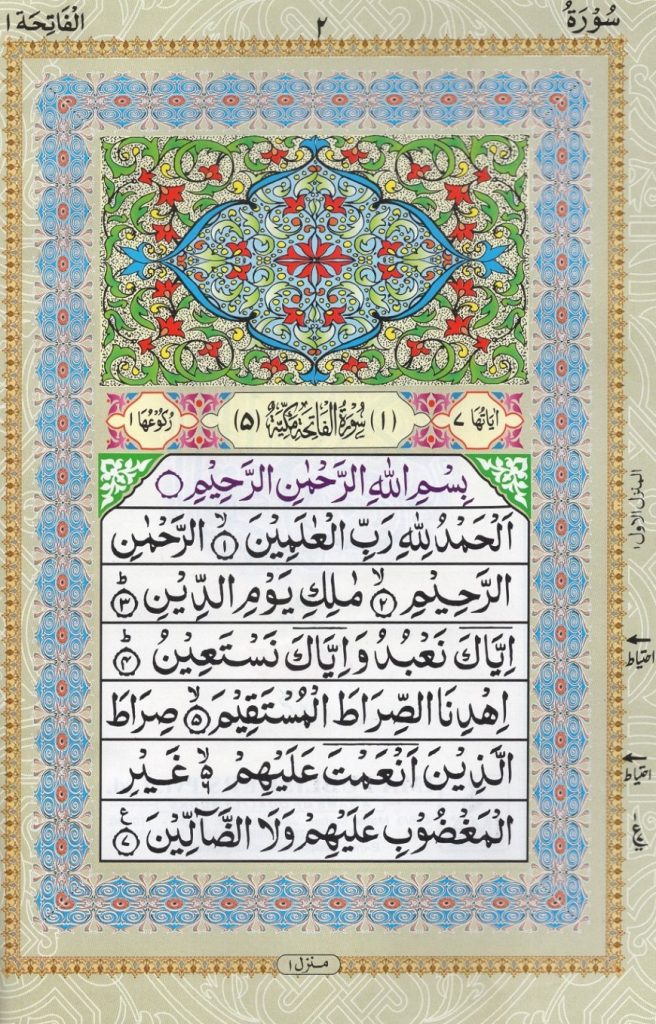 سُوْرَةُ ٢ الْفَاتِحَة ١
اٰيَاتُهَا ٧ (١) سُوْرَةُ الْفَاتِحَةِ مَكِّيَّةٌ (٥) رُكُوْعُهَا ١
بِسْمِ اللّٰهِ الرَّحْمٰنِ الرَّحِيْمِ
اَلْحَمْدُ لِلّٰهِ رَبِّ الْعٰلَمِيْنَ ۙ‏﴿١﴾ الرَّحْمٰنِ
الرَّحِيْمِ ۙ‏﴿٢﴾ مٰلِكِ يَوْمِ الدِّيْنِ ؕ‏﴿٣﴾
اِيَّاكَ نَعْبُدُ وَ اِيَّاكَ نَسْتَعِيْنُ ؕ‏﴿٤﴾
اِهْدِنَا الصِّرَاطَ الْمُسْتَقِيْمَ ۙ‏﴿٥﴾ صِرَاطَ
الَّذِيْنَ اَنْعَمْتَ عَلَيْهِمْ ۙ۬ ٦ غَيْرِ
الْمَغْضُوْبِ عَلَيْهِمْ وَلَا الضَّآلِّيْنَ ﴿٧﴾ ع
المنزل الاول ١
احتیاط
احتیاط
منزل ١